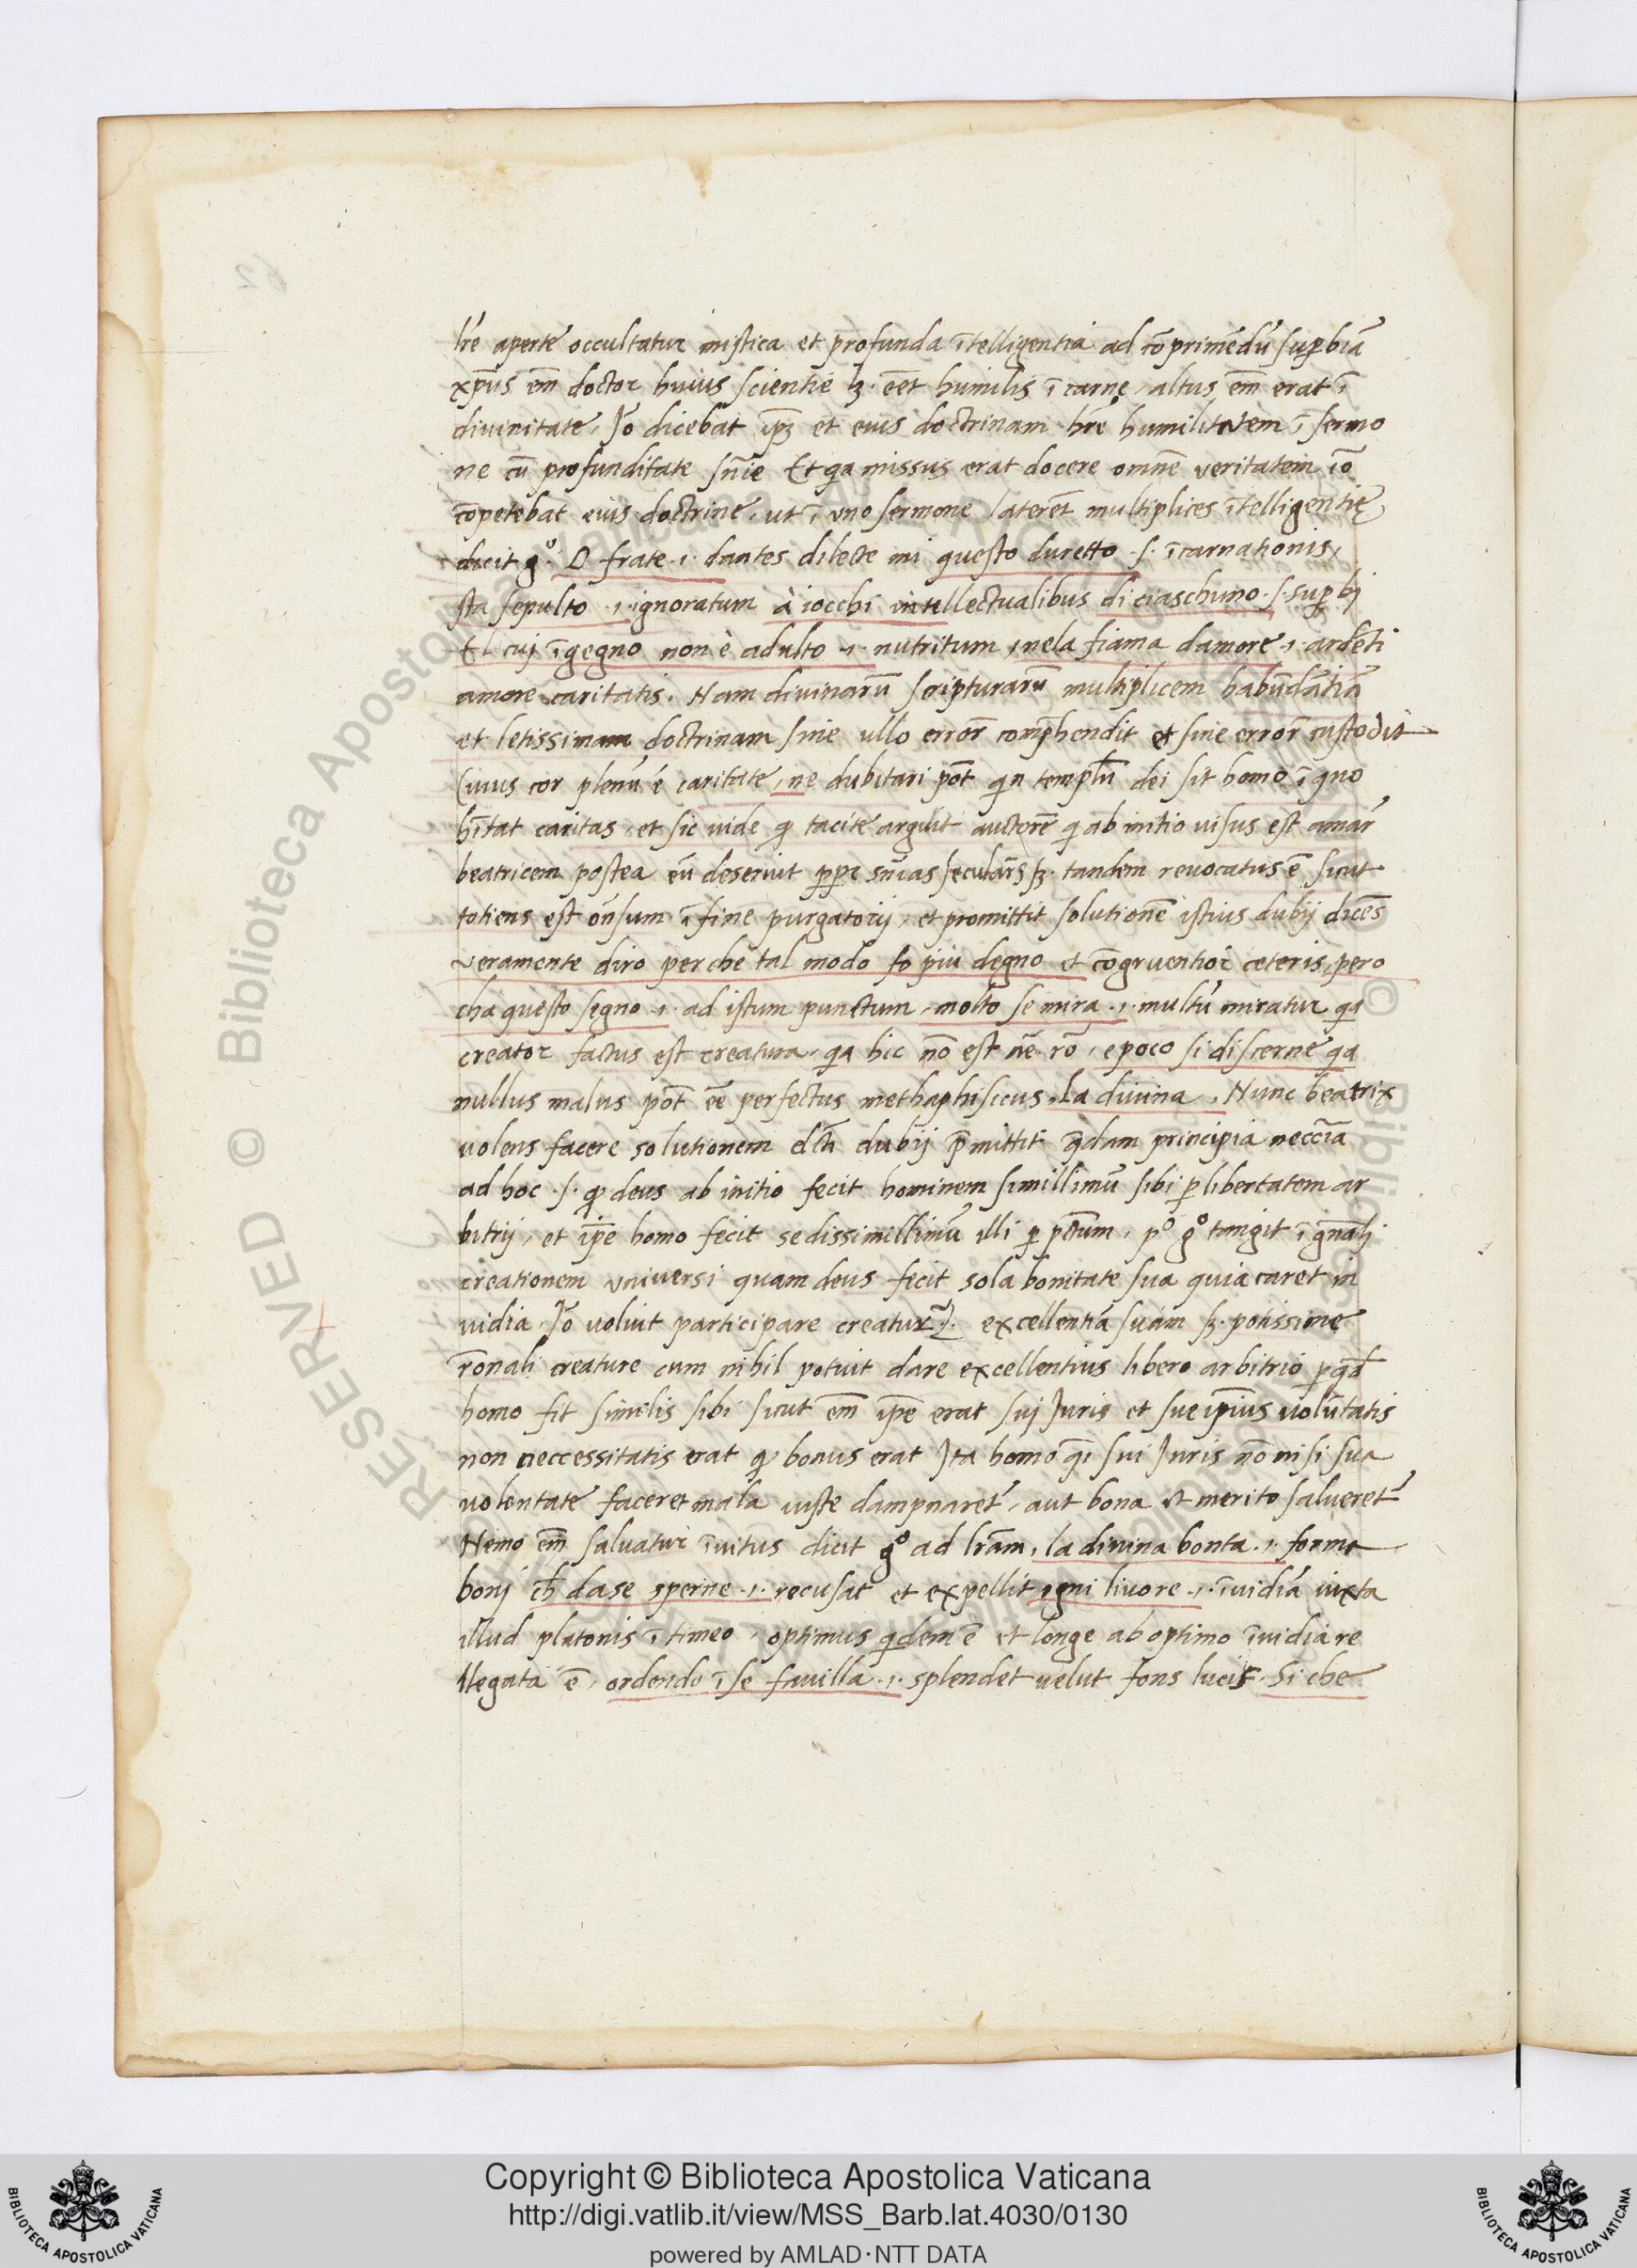 lr̄e aperte occultatur mistica et profunda ītelligentia ad cōprimēdū sup̱biā
xp̄us em̄ doctor huius scientie lꝫ. eēt humilis ī carne, altus em̄ erat ī
divinitate. Jō dicebat ip̄ꝫ et eius doctrinam hr̄e humilitatem ī sermo
ne cū profunditate sn̄ie Et qa missus erat docere omnē veritatem iō
cōpetebat eius doctrine, ut ī uno sermone laterēt multiplices ītelligentię
dicit gº. O frate .i. dantes dilecte mi questo duretto .s. īcarnationis,
sta sepulto .i. ignoratum à iocchi intellectualibus di ciaschuno .s. sup̱bi
El cuj īgegno non è adulto .i. nutritum, nela fiama damore .i. ardēti
amore caritatis. Nam divinarū scripturarū multiplicem habūdātiā
et letissimam doctrinam sine ullo error̄ comp̄hendit et sine error̄ custodit
Cuius cor plenū é caritate, ne dubitari pōt qn templū dei sit homo ī quo
hītat caritas, et sic vide ꝙ tacite arguit auctorē q ab initio visus est amar̄
beatricem postea eū deseruit pp̱ sciētias seculares sꝫ. tandem revocatus ē sicut
totiens est ōnsum ī fine purgatorij, et promittit solutionē istius dubij dicēs
veramente diro perche tal modo fo piu degno et cōgruentior ceteris, pero
cha questo segno .i. ad istum punctum, molto se mira .i. multū miratur qa
creator factus est creatura, qa hic nō est nē. rō, e poco si discerne qa
nullus malus pōt eē perfectus methaphisicus. La divina. Nunc beatrix
volens facere solutionem dc̄ti dubij p̄mittit q̄dam principia neccīa
ad hoc .s. ꝙ deus ab initio fecit hominem simillimū sibi p̱ libertatem ar
bitrij, et ip̄e homo fecit se dissimillimū illi p̱ pctūm, pº gº tangit ī gn̄ali
creationem universi quam deus fecit sola bonitate sua quia caret in
vidia. Jō voluit participare creaturꝝ. excellentiā suam sꝫ. potissime
rōnali creature cum nihil potuit dare excellentius libero arbitrio p̱ qd̄
homo fit similis sibi sicut em̄ ip̄e erat suj Juris et sue ip̄ius volūtatis
non neccessitatis erat ꝙ bonus erat Jta homo qi sui Juris nō nisi sua
volentate faceret mala iuste dampnaret̄, aut bona ut merito salveret̄
Nemo em̄ salvatur īvitus dicit gº ad lr̄am, la divina bonta .i. forma
bonj ch̄ da se sperne .i. recusat et expellit ogni livore .i. īvidiā iuxta
illud platonis ī timeo, optimus q̄dem ē et longe ab optimo īvidia re
llegata ē, ardendo ī se favilla .i. splendet velut fons lucis. Si che
Copyright © Biblioteca Apostolica Vaticana
http://digi.vatlib.it/view/MSS_Barb.lat.4030/0130
powered by AMLAD·NTT DATA
BIBLIOTECA APOSTOLICA VATICANA
BIBLIOTECA APOSTOLICA VATICANA